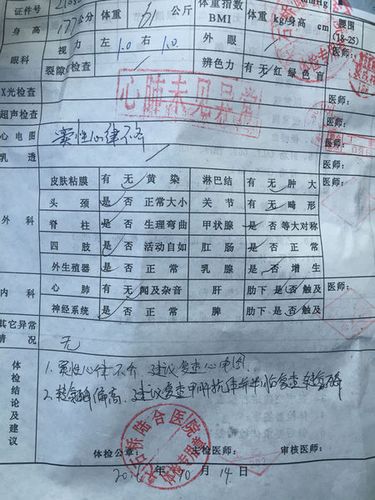 证件号 体重 体重指数 mmHg
身高 177 公分 体重 公斤 BMI 体重kg/身高cm 腰围
(18-25)
眼科 视力 左 1.0 右 1.0 外眼 医师:
裂隙检查 辨色力 有 无 红绿色盲
X光检查 心肺未见异常 医师:
超声检查 医师:
心电图 窦性心律不齐 医师:
乳透 医师:
外科 皮肤粘膜 有 无 黄染 淋巴结 有 无 肿大
头颈 是 否 正常大小 关节 有 无 畸形
脊柱 是 否 生理弯曲 甲状腺 是 否 等大对称
四肢 是 否 活动自如 肛肠 是 否 正常
外生殖器 是 否 正常 乳腺 是 否 增生
内科 心肺 有 无 闻及杂音 肝 肋下 是 否 触及 医师:
神经系统 是 否 正常 脾 肋下 是 否 触及
其它异常情况 无
体检结论及建议 1. 窦性心律不齐, 建议复查心电图.
2. 偏高, 建议复查
体检公章: 主检医师: 审核医师:
年 10 月 14 日